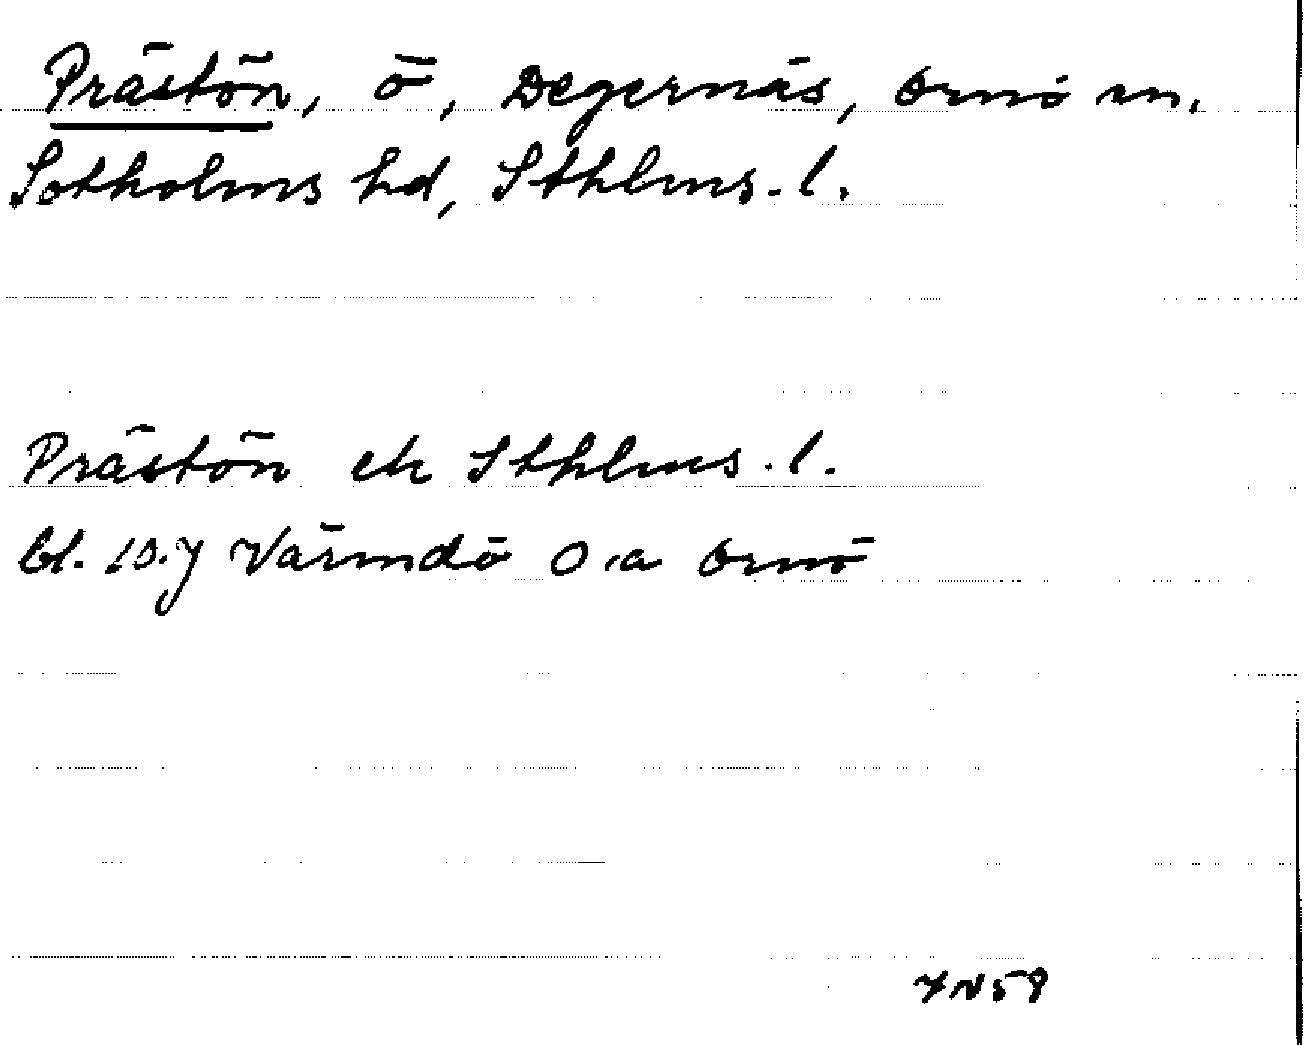 Prästön, ö, Degernäs, Ornö sn.
Sotholms hd, Sthlms. l.
Prästön ek Sthlms. l.
bl. 10.7 Värmdö O.a Ornö